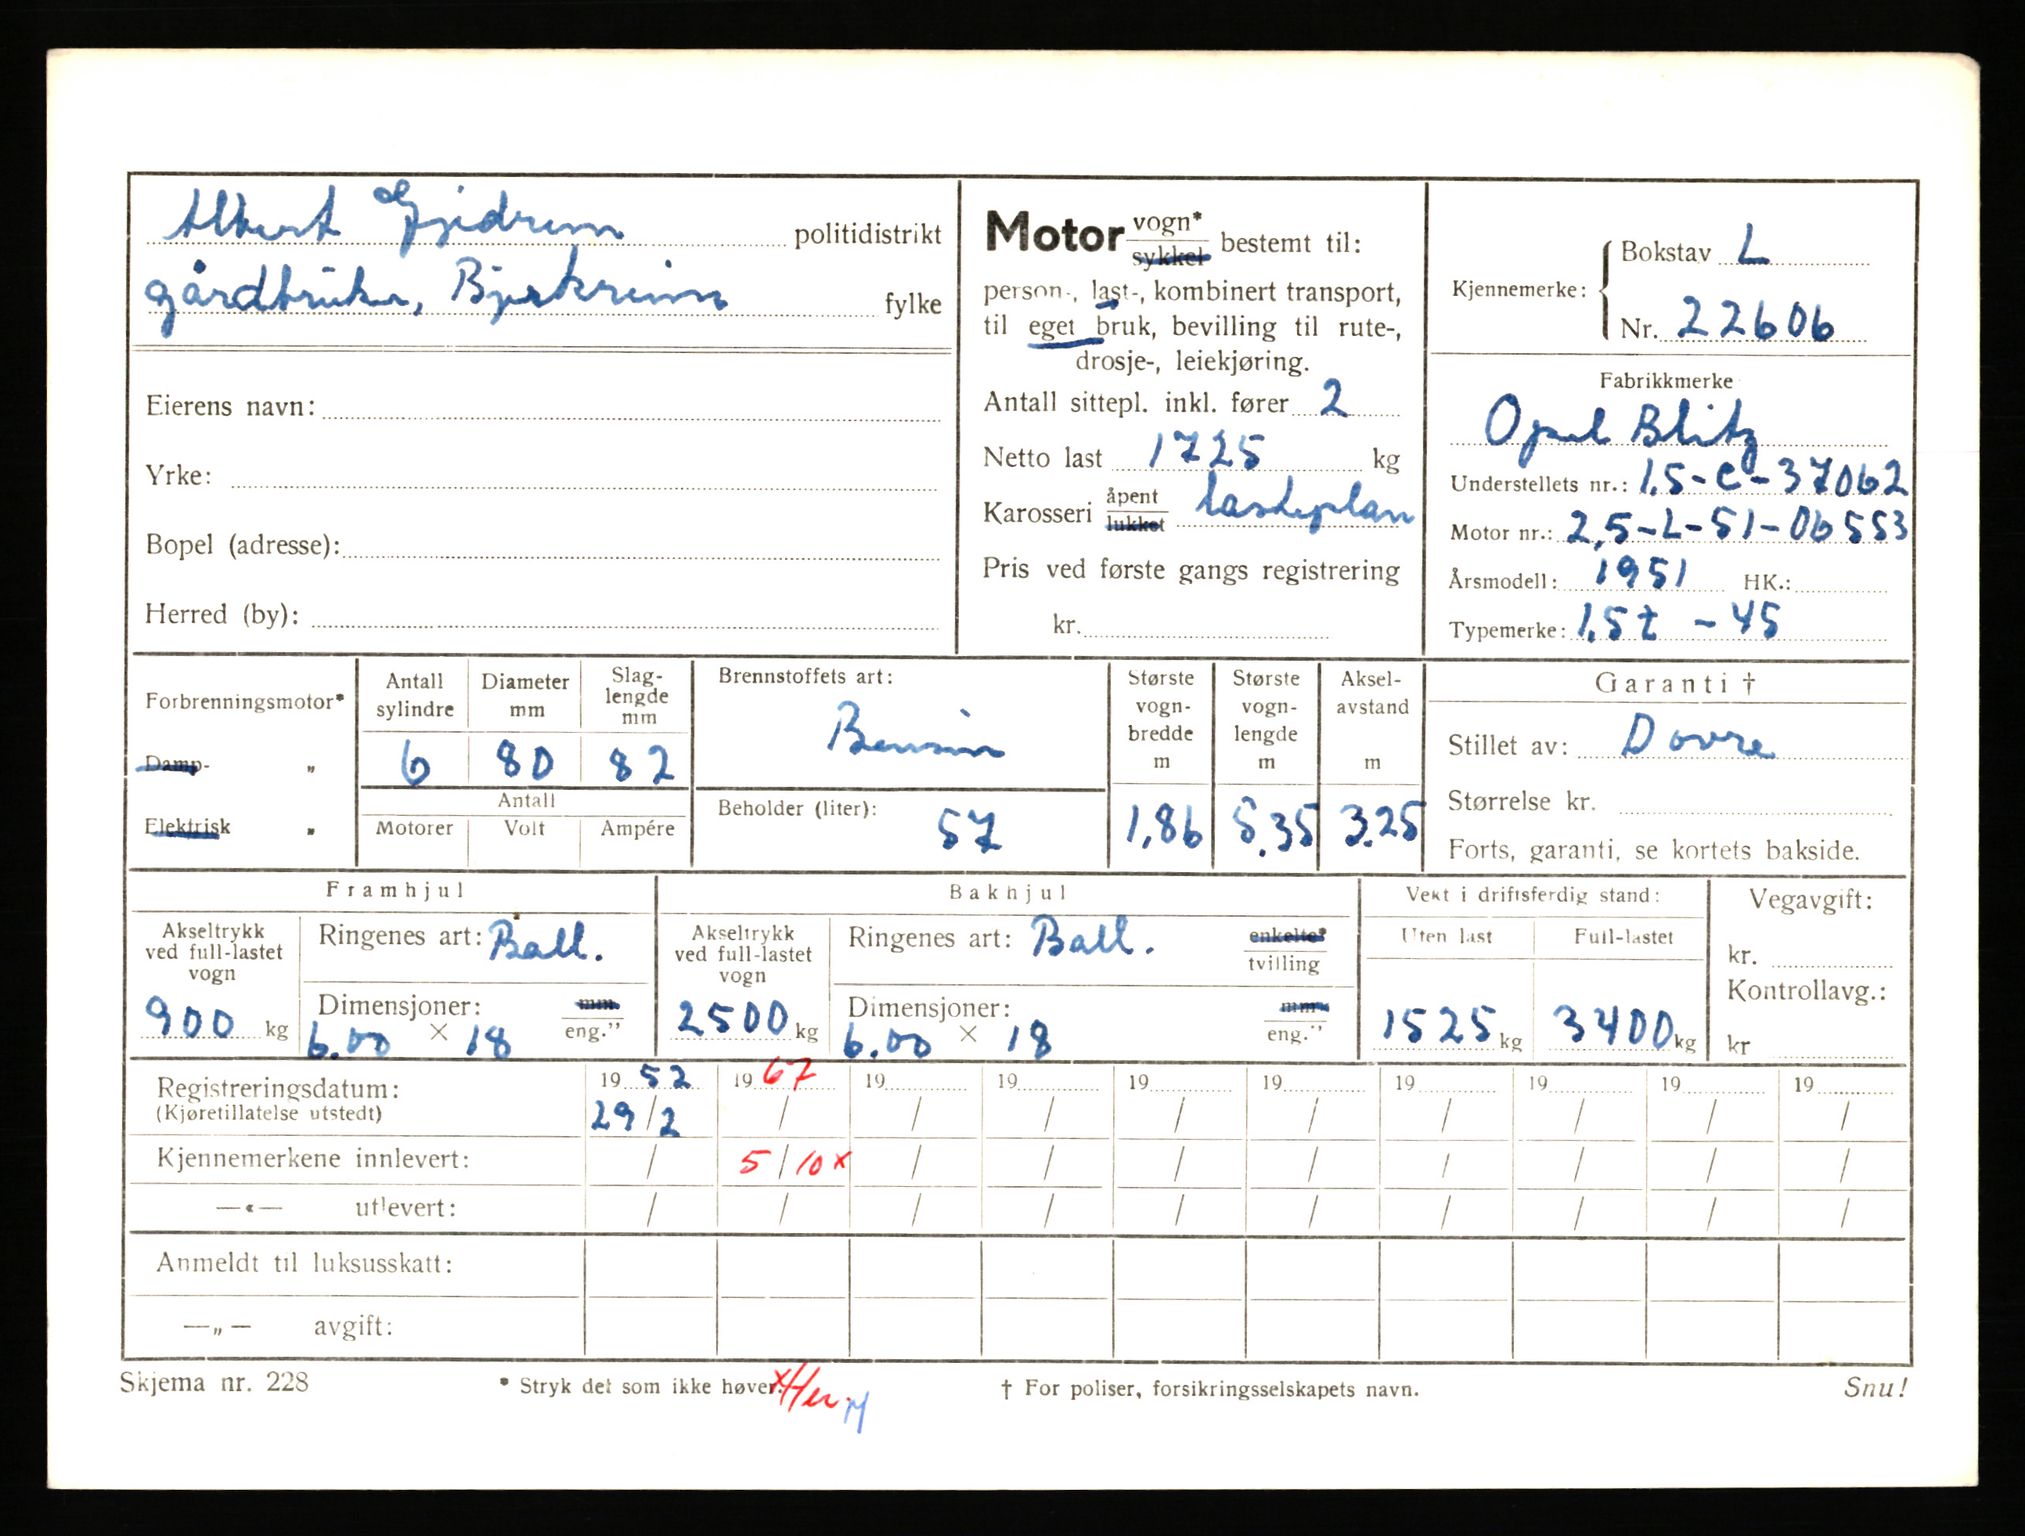 Albert Gjedrem politidistrikt
gårdbruker, Bjerkreim fylke
Eierens navn:
Yrke:
Bopel (adresse):
Herred (by):
Motor vogn* sykkel bestemt til:
person-, last-, kombinert transport,
til eget bruk, bevilling til rute-,
drosje-, leiekjøring.
Antall sittepl. inkl. fører 2
Netto last 1725 kg
Karosseri åpent lukket lasteplan
Pris ved første gangs registrering
kr.
Kjennemerke: Bokstav L
Nr. 22606
Fabrikkmerke
Opel Blitz
Understellets nr.: 1,5-C-37062
Motor nr.: 2,5-L-51-06553
Årsmodell: 1951 HK.:
Typemerke: 1,5 t - 45
Forbrenningsmotor*
Damp- „
Elektrisk „
Antall sylindre 6
Diameter mm 80
Slaglengde mm 82
Antall
Motorer Volt Ampére
Brennstoffets art:
Bensin
Beholder (liter): 57
Største vognbredde m 1,86
Største vognlengde m 5.35
Akselavstand m 3.25
Garanti †
Stillet av: Dovre
Størrelse kr.
Forts, garanti, se kortets bakside.
Framhjul
Akseltrykk ved full-lastet vogn 900 kg
Ringenes art: Ball.
Dimensjoner: 6.00 × 18 mm eng."
Bakhjul
Akseltrykk ved full-lastet vogn 2500 kg
Ringenes art: Ball. enkelte* tvilling
Dimensjoner: 6.00 × 18 mm eng."
Vekt i driftsferdig stand:
Uten last Full-lastet
1525 kg 3400 kg
Vegavgift:
kr.
Kontrollavg.:
kr
Registreringsdatum: 19 52 19 67 19 19 19 19 19 19 19 19
(Kjøretillatelse utstedt) 29/2 / / / / / / / / /
Kjennemerkene innlevert: / 5/10 x / / / / / / / /
—«— utlevert: / / / / / / / / / /
Anmeldt til luksusskatt:
—„— avgift:
Skjema nr. 228 * Stryk det som ikke høver. x Her. † For poliser, forsikringsselskapets navn. Snu!